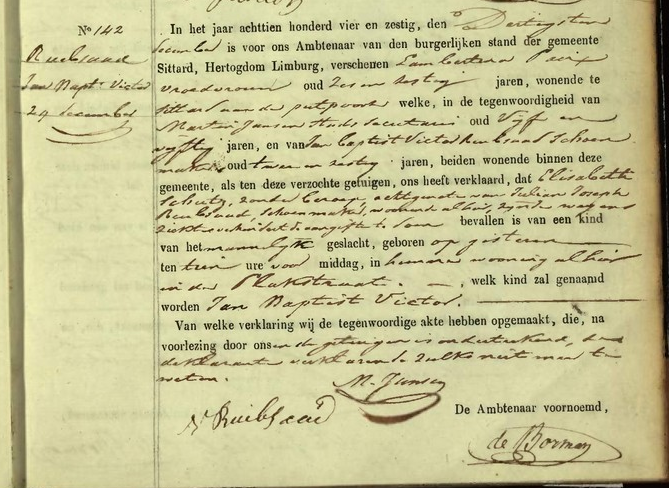 No 142
Ruebsaad
Jan Bapt. Victor
29 december
In het jaar achttien honderd vier en zestig, den Dertigsten
december is voor ons Ambtenaar van den burgerlijken stand der gemeente
Sittard, Hertogdom Limburg, verschenen Lambertina
vroedvrouw oud zes en zestig jaren, wonende te
Sittard aan de putpoort welke, in de tegenwoordigheid van
Martin Jansen Stads secretaris oud Vijf en
vijftig jaren, en van Jan Baptist Victor Ruebsaad Schoen
maker oud twee en zestig jaren, beiden wonende binnen deze
gemeente, als ten deze verzochte getuigen, ons heeft verklaard, dat Elisabeth
Schutz, zonder beroep, echtgenote van Julian Joseph
Ruebsaad, Schoenmaker, wonende alhier, zijnde wegens
ziekte verhinderd de aangifte te doen bevallen is van een kind
van het mannelijk geslacht, geboren op gisteren
ten tien ure voor middag, in hunne woonig alhier
in de Plakstraat. welk kind zal genaamd
worden Jan Baptist Victor.
Van welke verklaring wij de tegenwoordige akte hebben opgemaakt, die, na
voorlezing door ons en de getuigen is onderteekend, de
deklarante verklarende zulks niet meer te
weten.
M. Jansen
Ruebsaad
De Ambtenaar voornoemd,
de Borman